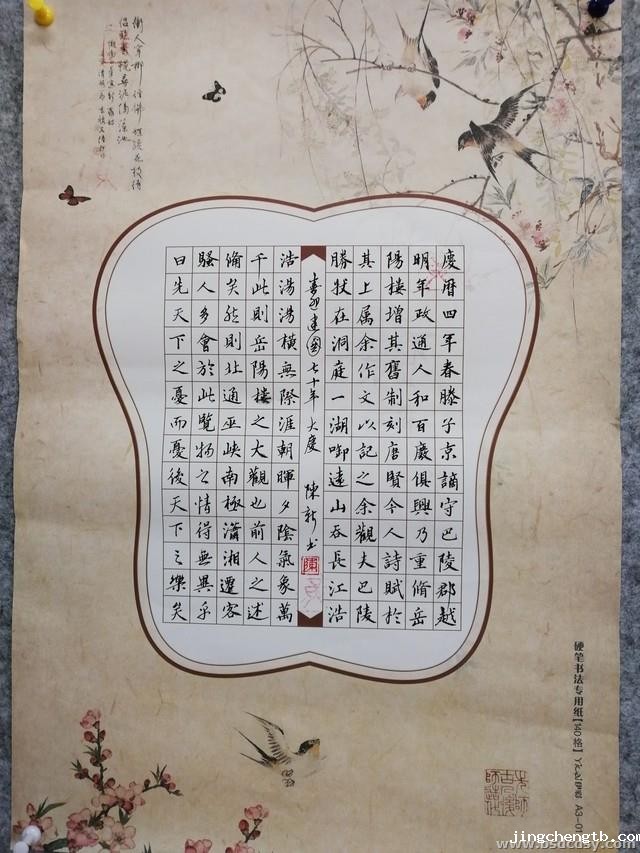 慶曆四年春滕子京謫守巴陵郡越
明年政通人和百廢俱興乃重脩岳
陽樓增其舊制刻唐賢今人詩賦於
其上属余作文以記之余觀夫巴陵
勝狀在洞庭一湖啣遠山吞長江浩
喜迎建國七十年大慶 陳新书
浩湯湯橫無際涯朝暉夕陰氣象萬
千此則岳陽樓之大觀也前人之述
俻矣然則北通巫峽南極瀟湘遷客
騷人多會於此覽物之情得無異乎
曰先天下之憂而憂後天下之樂矣
硬笔书法专用纸【140格】 A3-01
jingchengtb.com
www.bsdcdsy.com